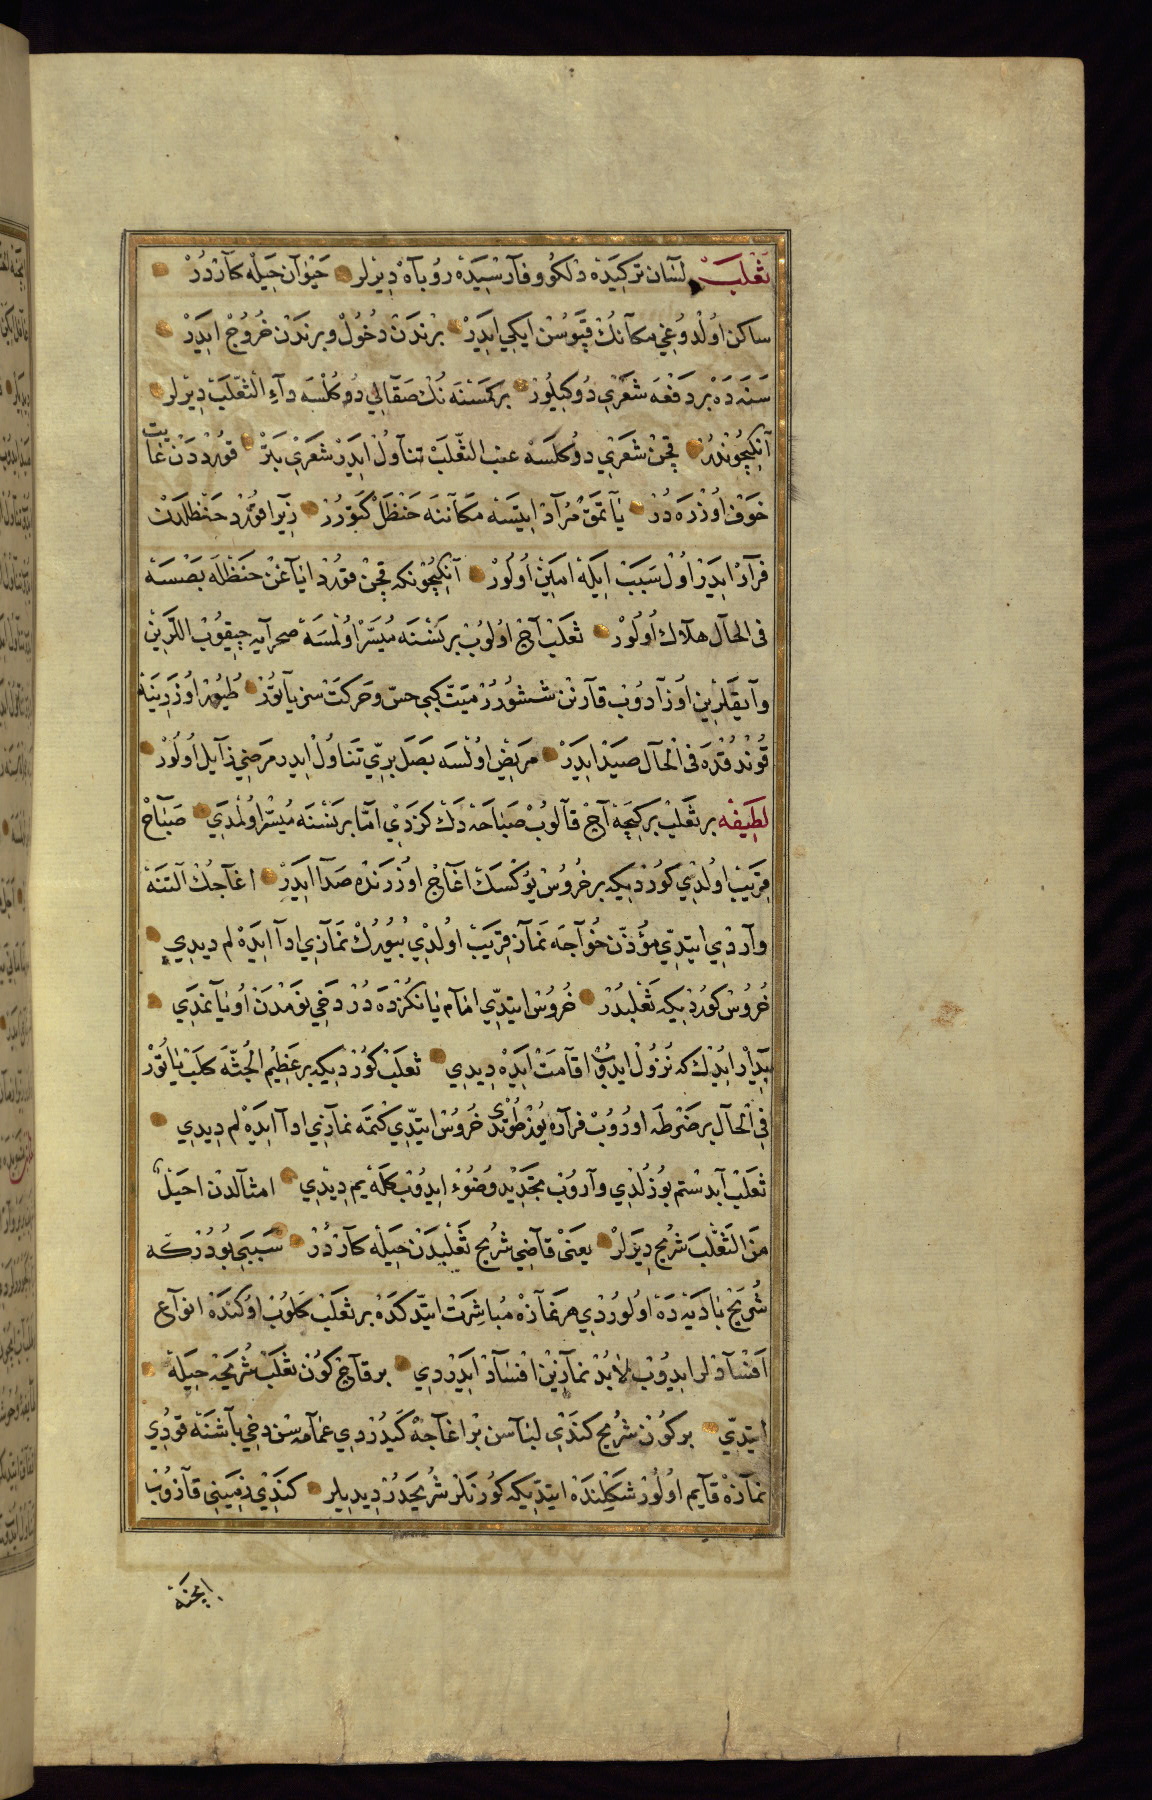 ثَعْلَبْ لسَان تركيده دلكو و فارسيده روباه ديرلر حيوان حيله كاردر
ساكن اولدوغي مكانك قپوسن ايكي ايدر برندن دخول و برندن خروج ايدر
سنه ده بر دفعه شعري دوكيلور بر كمسنه نك صقالي دوكلسه داء الثعلب ديرلر
آنكيچوندر قچن شعري دوكلسه عنب الثعلب تناول ايدر شعري بتر قورددن غايت
خوف اوزره در ياتمق مراد ايتسه مكاننه حنظل كتورر زيرا قورد حنظلدن
فرار ايدر اول سبب ايله امين اولور آنكيچونكه قچن قورد اياغن حنظله بصسه
فى الحال هلاك اولور ثعلب آج اولوب بر نسنه ميسر اولمسه صحرايه چيقوب اللرين
و آيقلرين اوزادوب قارنن ششورر ميت كبي حس و حركت سز ياتور طيور اوزرينه
قوندقده فى الحال صيد ايدر مريض اولسه بصل بري تناول ايدر مرضي زايل اولور
لطيفه بر ثعلب بر كيجه آج قالوب صباحه دك كزدي اما بر نسنه ميسر اولمدي صباح
قريب اولدي كوردىكه بر خروس يوكسك اغاج اوزرنده صدا ايدر اغاجك آلتنه
واردي ايتدي مؤذن خواجه نماز قريب اولدي بيورك نمازي ادا ايده لم ديدي
خروس كوردىكه ثعلبدر خروس ايتدي امام يانكزده در دخي نومدن اويانمدي
بيدار ايدك كه نزول ايدوب اقامت ايده ديدي ثعلب كوردىكه بر عظيم الجثه كلب ياتور
فى الحال بر ضرطه اوروب فراره يوز طوتدى خروس ايتدي كتمه نمازي ادا ايده لم ديدي
ثعلب آبدستم بوزلدي واروب تجديد وضوء ايدوب كله يم ديدي امثالدن احيل
من الثعلب شريح ديرلر يعنى قاضي شريح ثعلبدن حيله كاردر سببي بودركه
شريح باديه ده اولوردي هر نمازه مباشرت ايتدكده بر ثعلب كلوب اوكنده انواع
افساد لر ايدوب لابد نمازين افساد ايدردي بر قاچ كون ثعلب شريحه حيله
ايتدي بر كون شريح كندي لباسن بر اغاجه كيدردي عمامه سن دخي باشنه قودي
نمازه قايم اولور شكلنده ايتديكه كورنلر شريحدر ديديلر كندي زميني قازوب
ايچنه